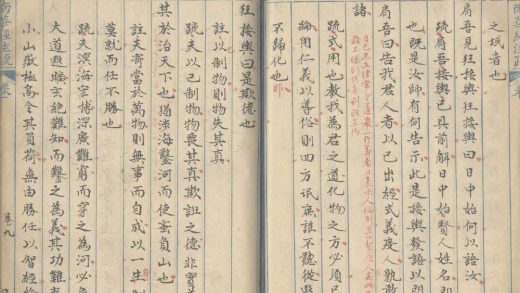 之域者也
肩吾見狂接輿曰日中始何以語汝
疏肩吾接輿已具前解日中始賢人姓名即
也既是汝師有何告示此是接輿發語以問
肩吾曰告我君人者以己出經式義度人孰敢
諸
疏式用也教我為君之道化物之方必須己
論用仁義以導俗則四方氓庶誰不聽從遐
不歸化也耶
狂接輿曰是欺德也
註以制物則物失其真
疏夫以己制物物喪其真欺誑之德非實
其於治天下也猶涉海鑿河而使蚉負山也
註夫寄當於萬物則無事而自成以一
莫就而任不勝也
疏夫溟海宏博深廣難窮而穿之為河必
大道遐曠玄絶難知而鑿之為義其功難
小山嶽極高令其負荷無由勝任以智經
卷九